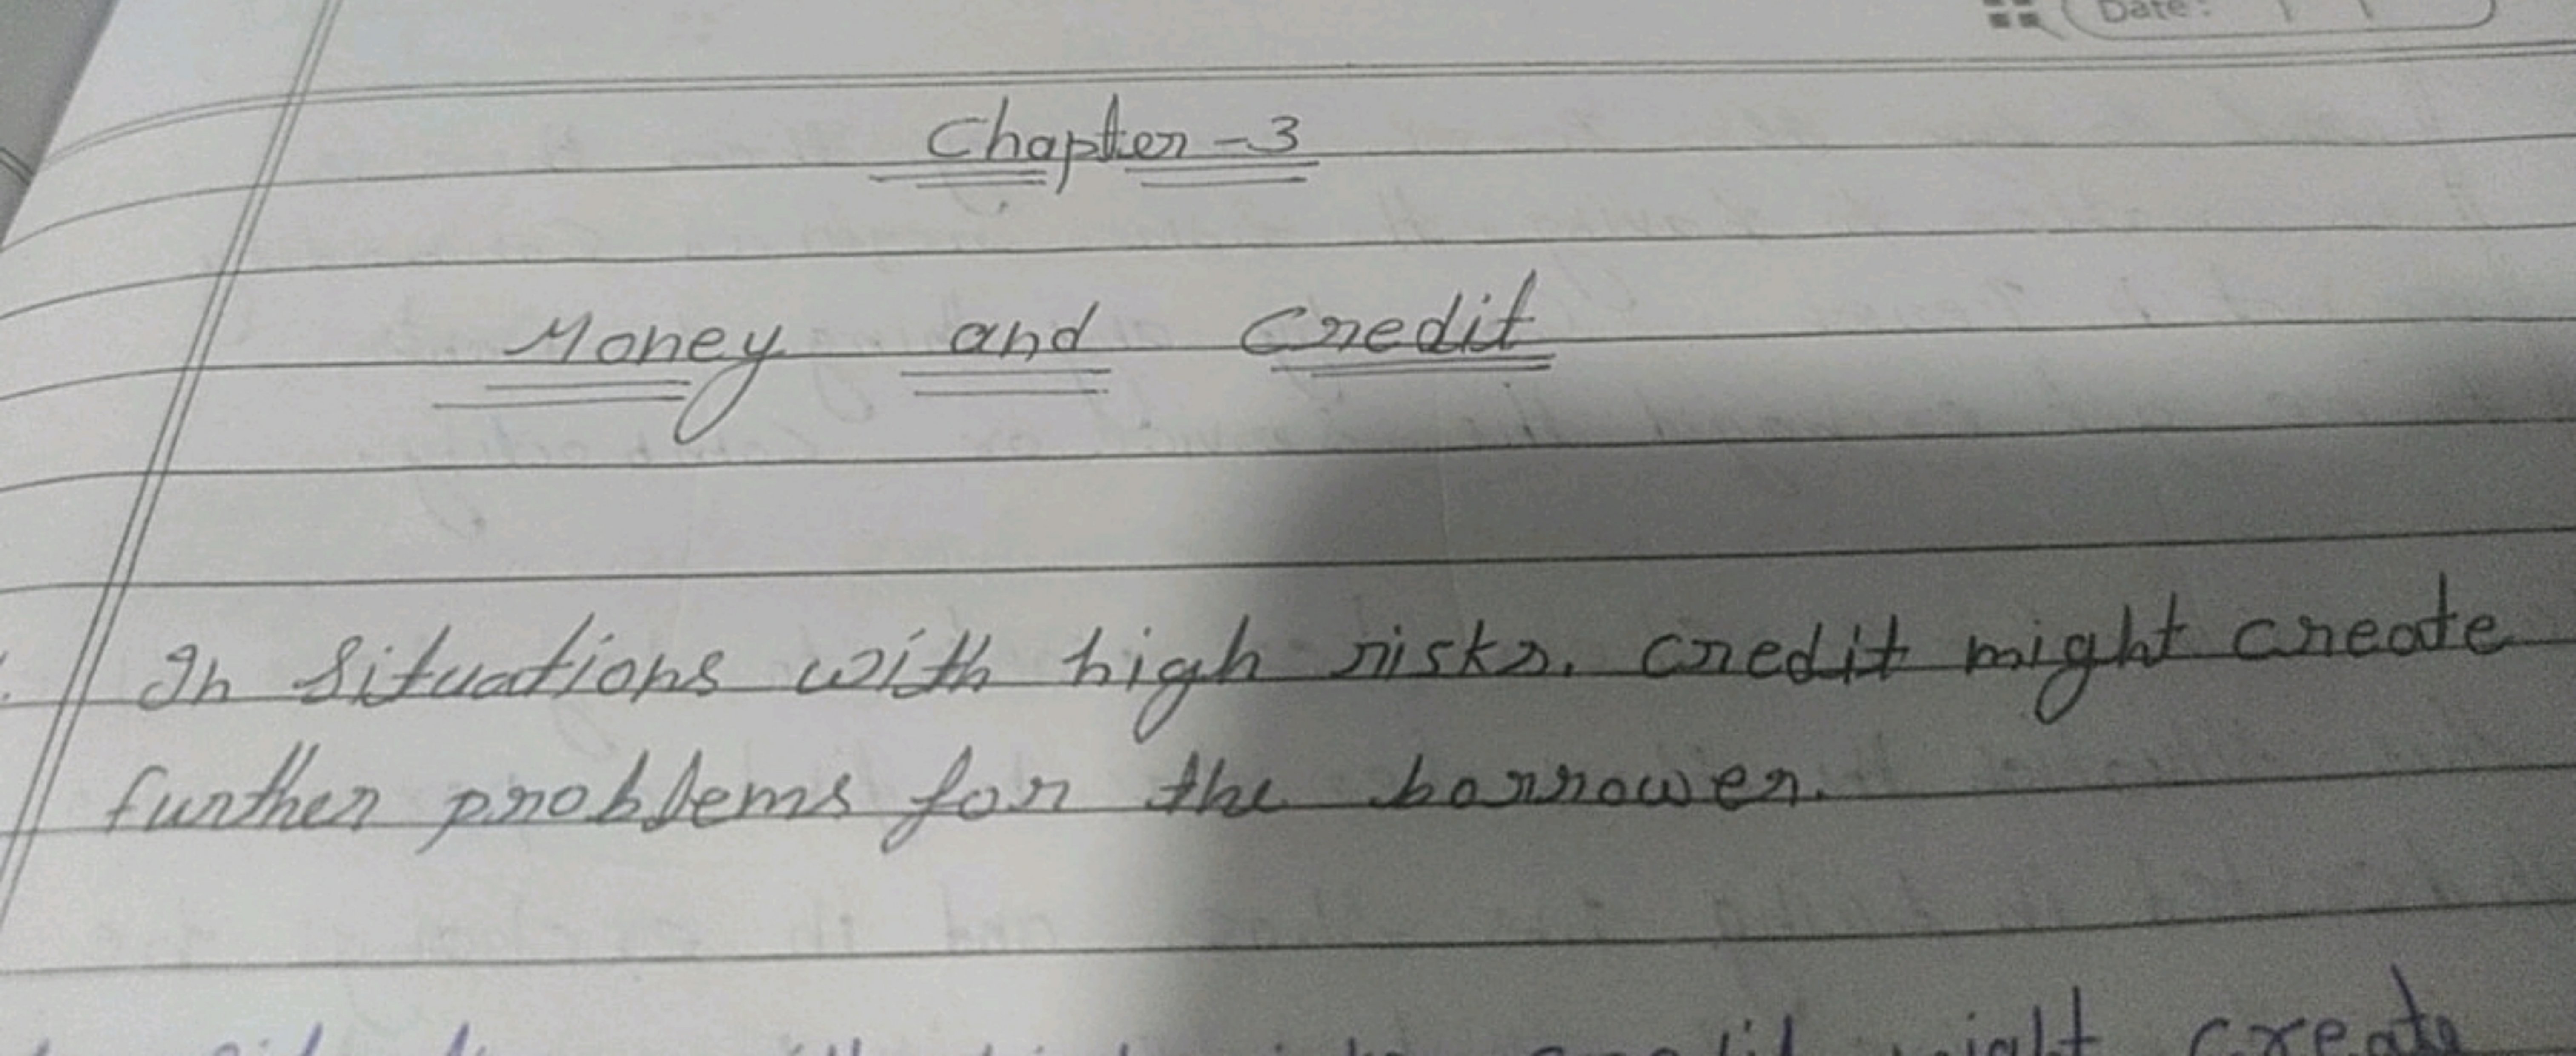 Date:
Chapter-3
Money and Credit
In situations with high risks. credit might create
further problems for the borrower.
might create